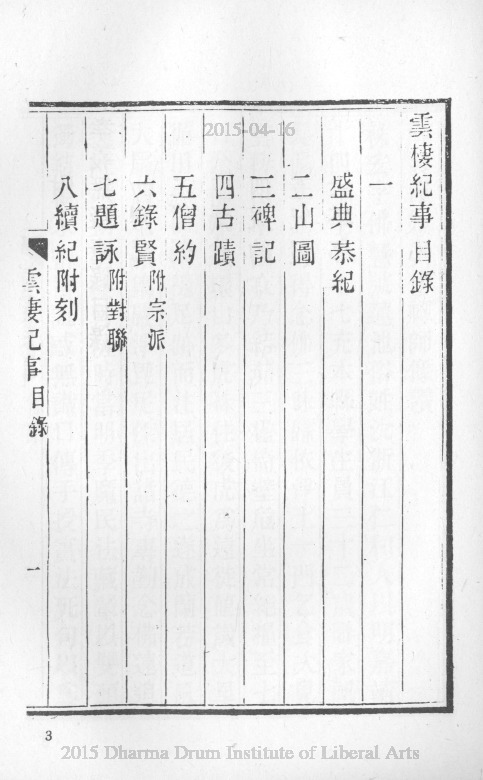 雲棲紀事 目錄
一
盛典恭紀
二山圖
三碑記
四古蹟
五僧約
六錄賢 附宗派
七題詠 附對聯
八續紀 附刻
雲棲紀事目錄
一
3
2015-04-16
2015 Dharma Drum Institute of Liberal Arts